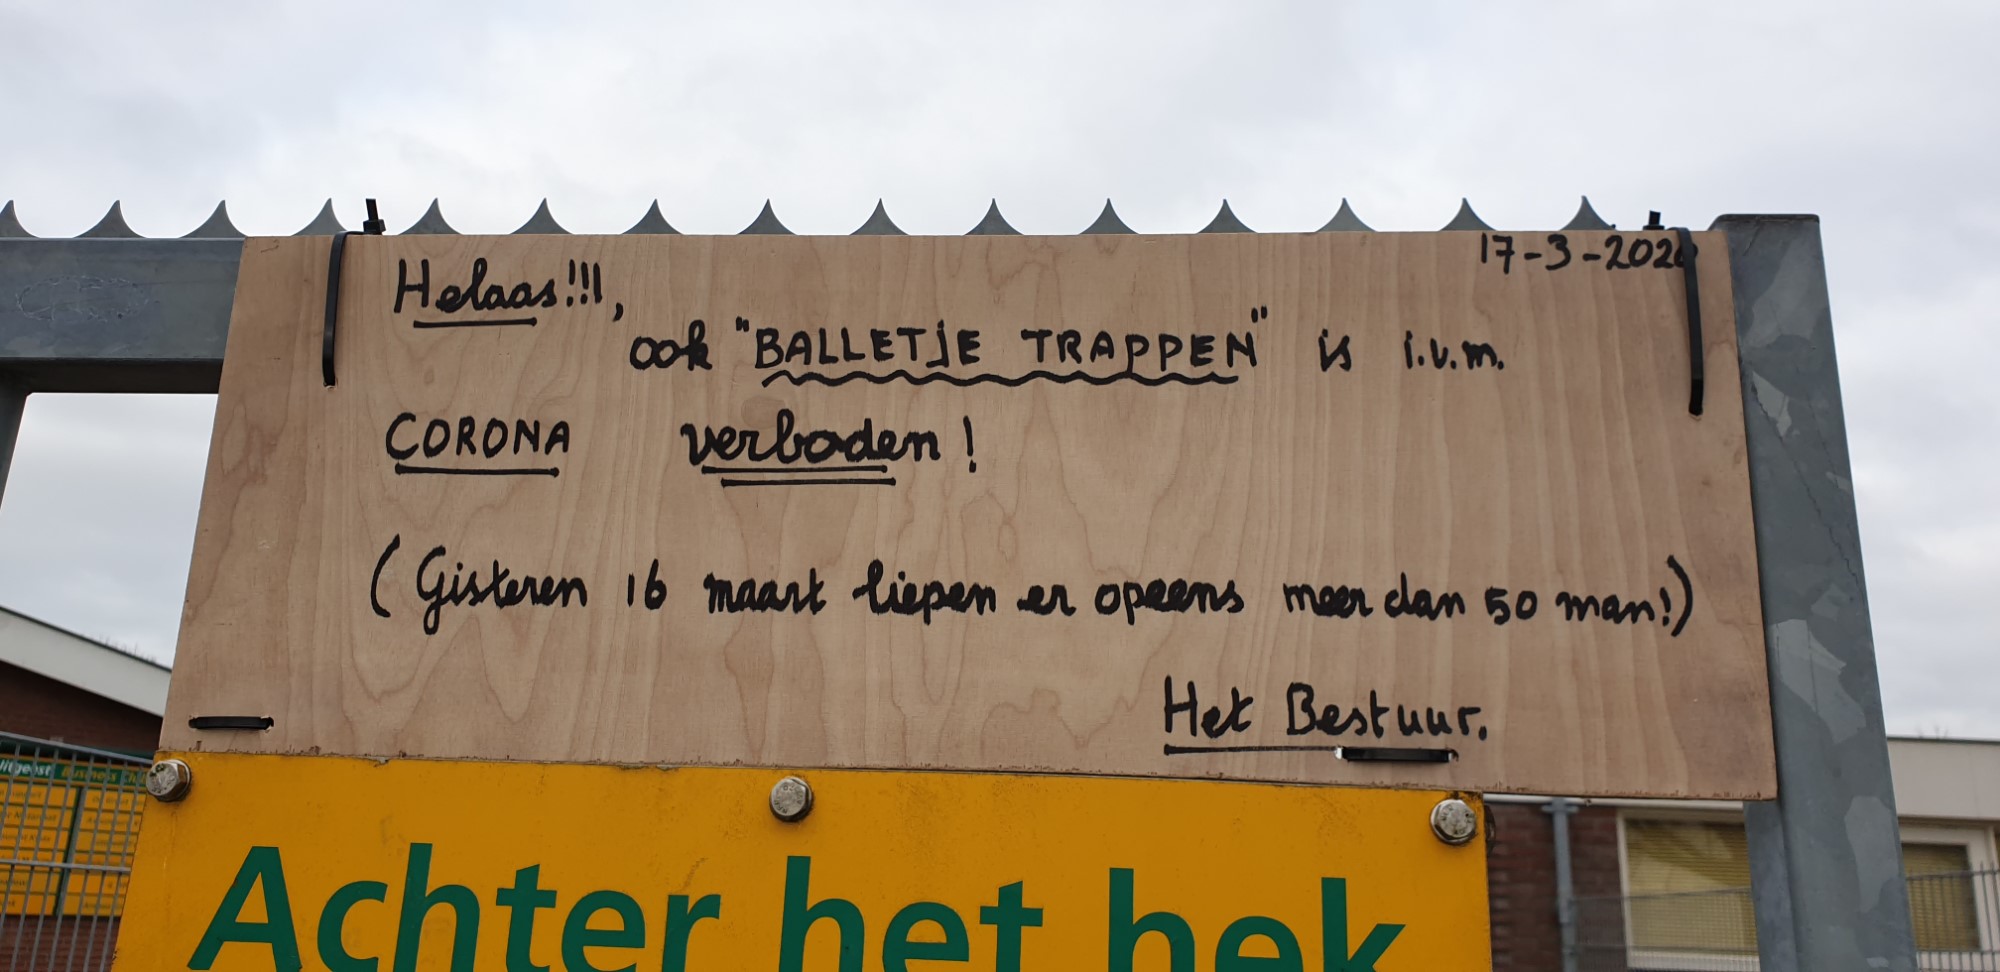 17-3-2020
Helaas!!!,
ook "BALLETJE TRAPPEN" is i.v.m.
CORONA verboden!
(Gisteren 16 maart liepen er opeens meer dan 50 man!)
Het Bestuur.
Achter het hek
Uitgeest Business Club